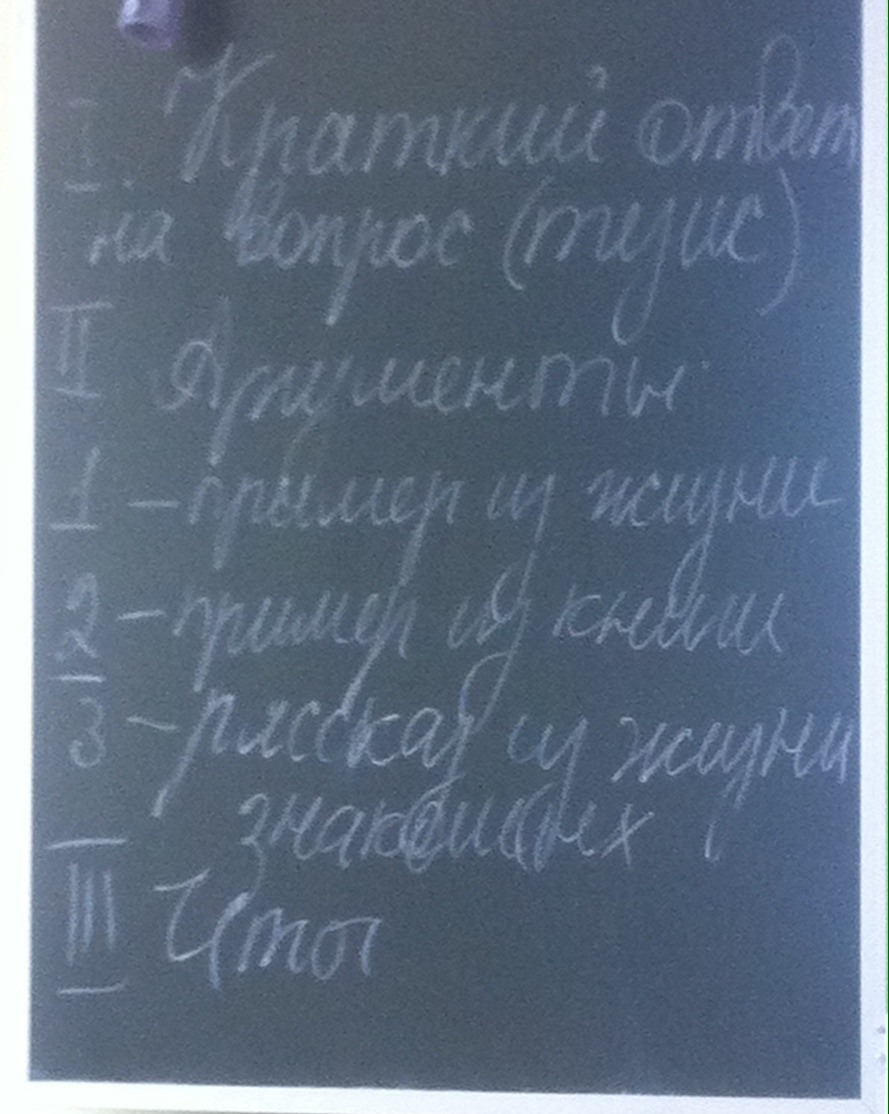 I Краткий ответ
на вопрос (тезис)
II Аргументы
1 – пример из жизни
2 – пример из книги
3 – рассказ из жизни
знакомых
III Итог